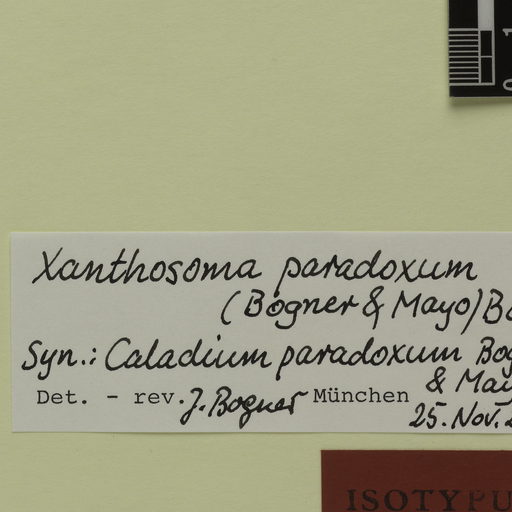 Xanthosoma paradoxum
(Bogner & Mayo) Bo
Syn.: Caladium paradoxum Bog
& May
Det. - rev. J. Bogner München
25. Nov. 2
ISOTYPU